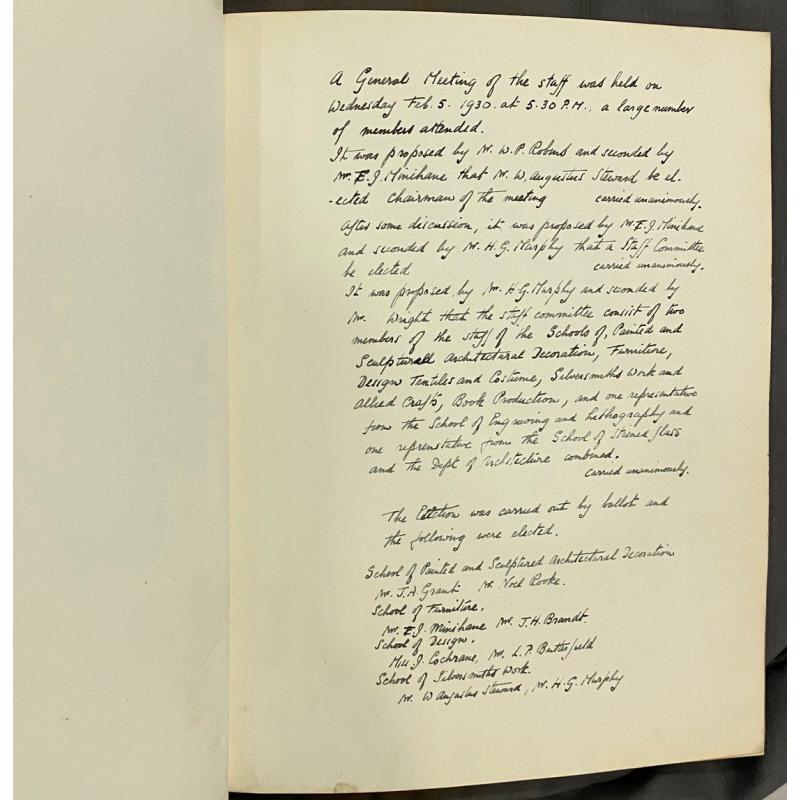 A General Meeting of the staff was held on
Wednesday Feb. 5. 1930. at 5.30 P.M., a large number
of members attended.
It was proposed by Mr. W. P. Robins and seconded by
Mr. E. J. Minihane that Mr. W. Augustus Steward be el-
-ected Chairman of the meeting carried unanimously.
After some discussion, it was proposed by Mr. E. J. Minihane
and seconded by Mr. H. G. Murphy that a Staff Committee
be elected carried unanimously.
It was proposed by Mr. H. G. Murphy and seconded by
Mr. Wright that the staff committee consist of two
members of the staff of the Schools of, Painted and
Sculptural Architectural Decoration, Furniture,
Design Textiles and Costume, Silversmiths Work and
Allied Crafts, Book Production, and one representative
from the School of Engraving and Lithography and
one reprenstative from the School of Stained Glass
and the Dept of Architecture combined.
carried unanimously.
The Election was carried out by ballot and
the following were elected.
School of Painted and Sculptured Architectural Decoration
Mr. J. A. Grant Mr. Noel Rooke.
School of Furniture.
Mr. E. J. Minihane Mr. J. H. Brandt.
School of Design.
Miss J. Cochrane, Mr. L. P. Butterfield
School of Silversmiths Work.
Mr. W Augustus Steward, Mr. H. G. Murphy